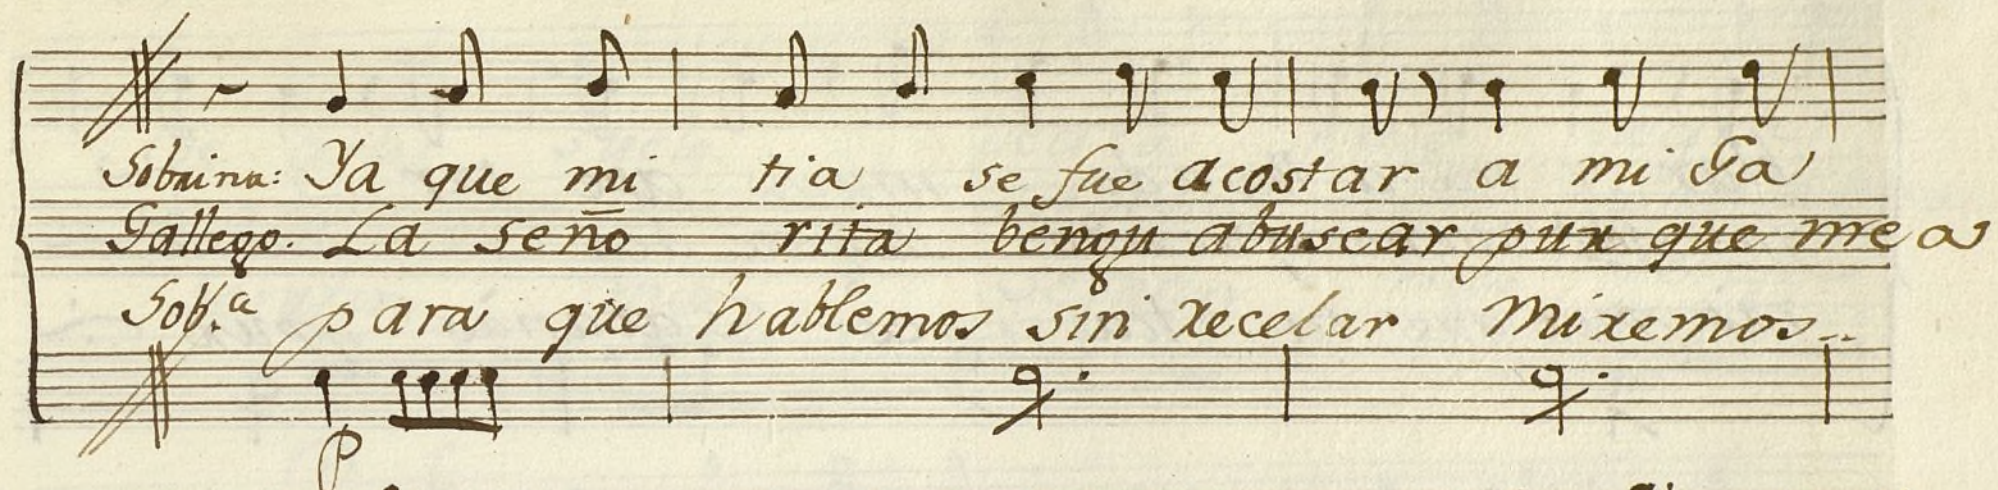 Sobrina: Ya que mi tia se fue acostar a mi Ga
Gallego. La seño rita bengu abuscar pur que me a
Sob.ª para que hablemos sin recelar Miremos..
P